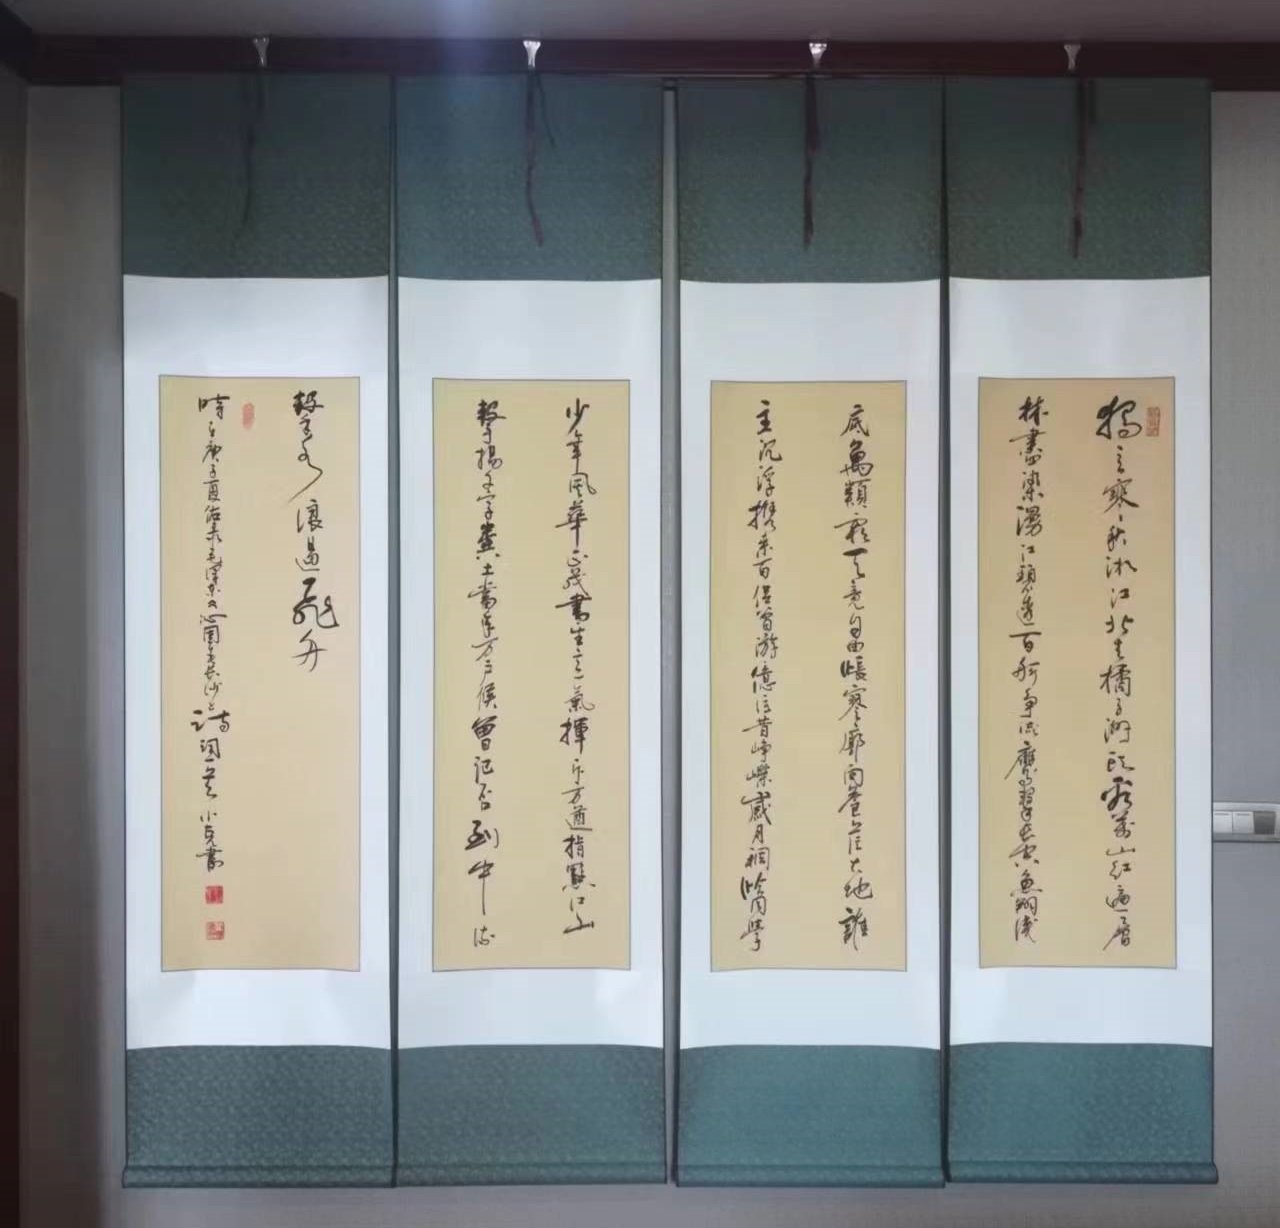 獨立寒秋湘江北去橘子洲頭看萬山紅遍層
林盡染漫江碧透百舸爭流鷹擊長空魚翔淺
底萬類霜天竟自由悵寥廓問蒼茫大地誰
主沉浮攜來百侶曾游憶往昔崢嶸歲月稠恰同學
少年風華正茂書生意氣揮斥方遒指點江山
擊揚文字糞土當年万戶侯曾記否到中流
擊水浪遏飛舟
時在庚子夏 录毛澤東 沁園春長沙之詩詞一首 小克書